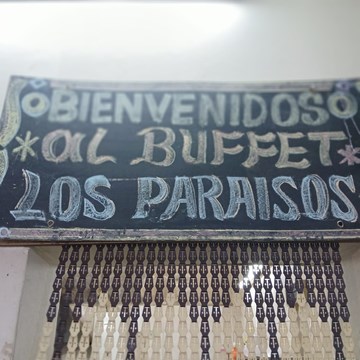 BIENVENIDOS
al BUFFET
LOS PARAISOS